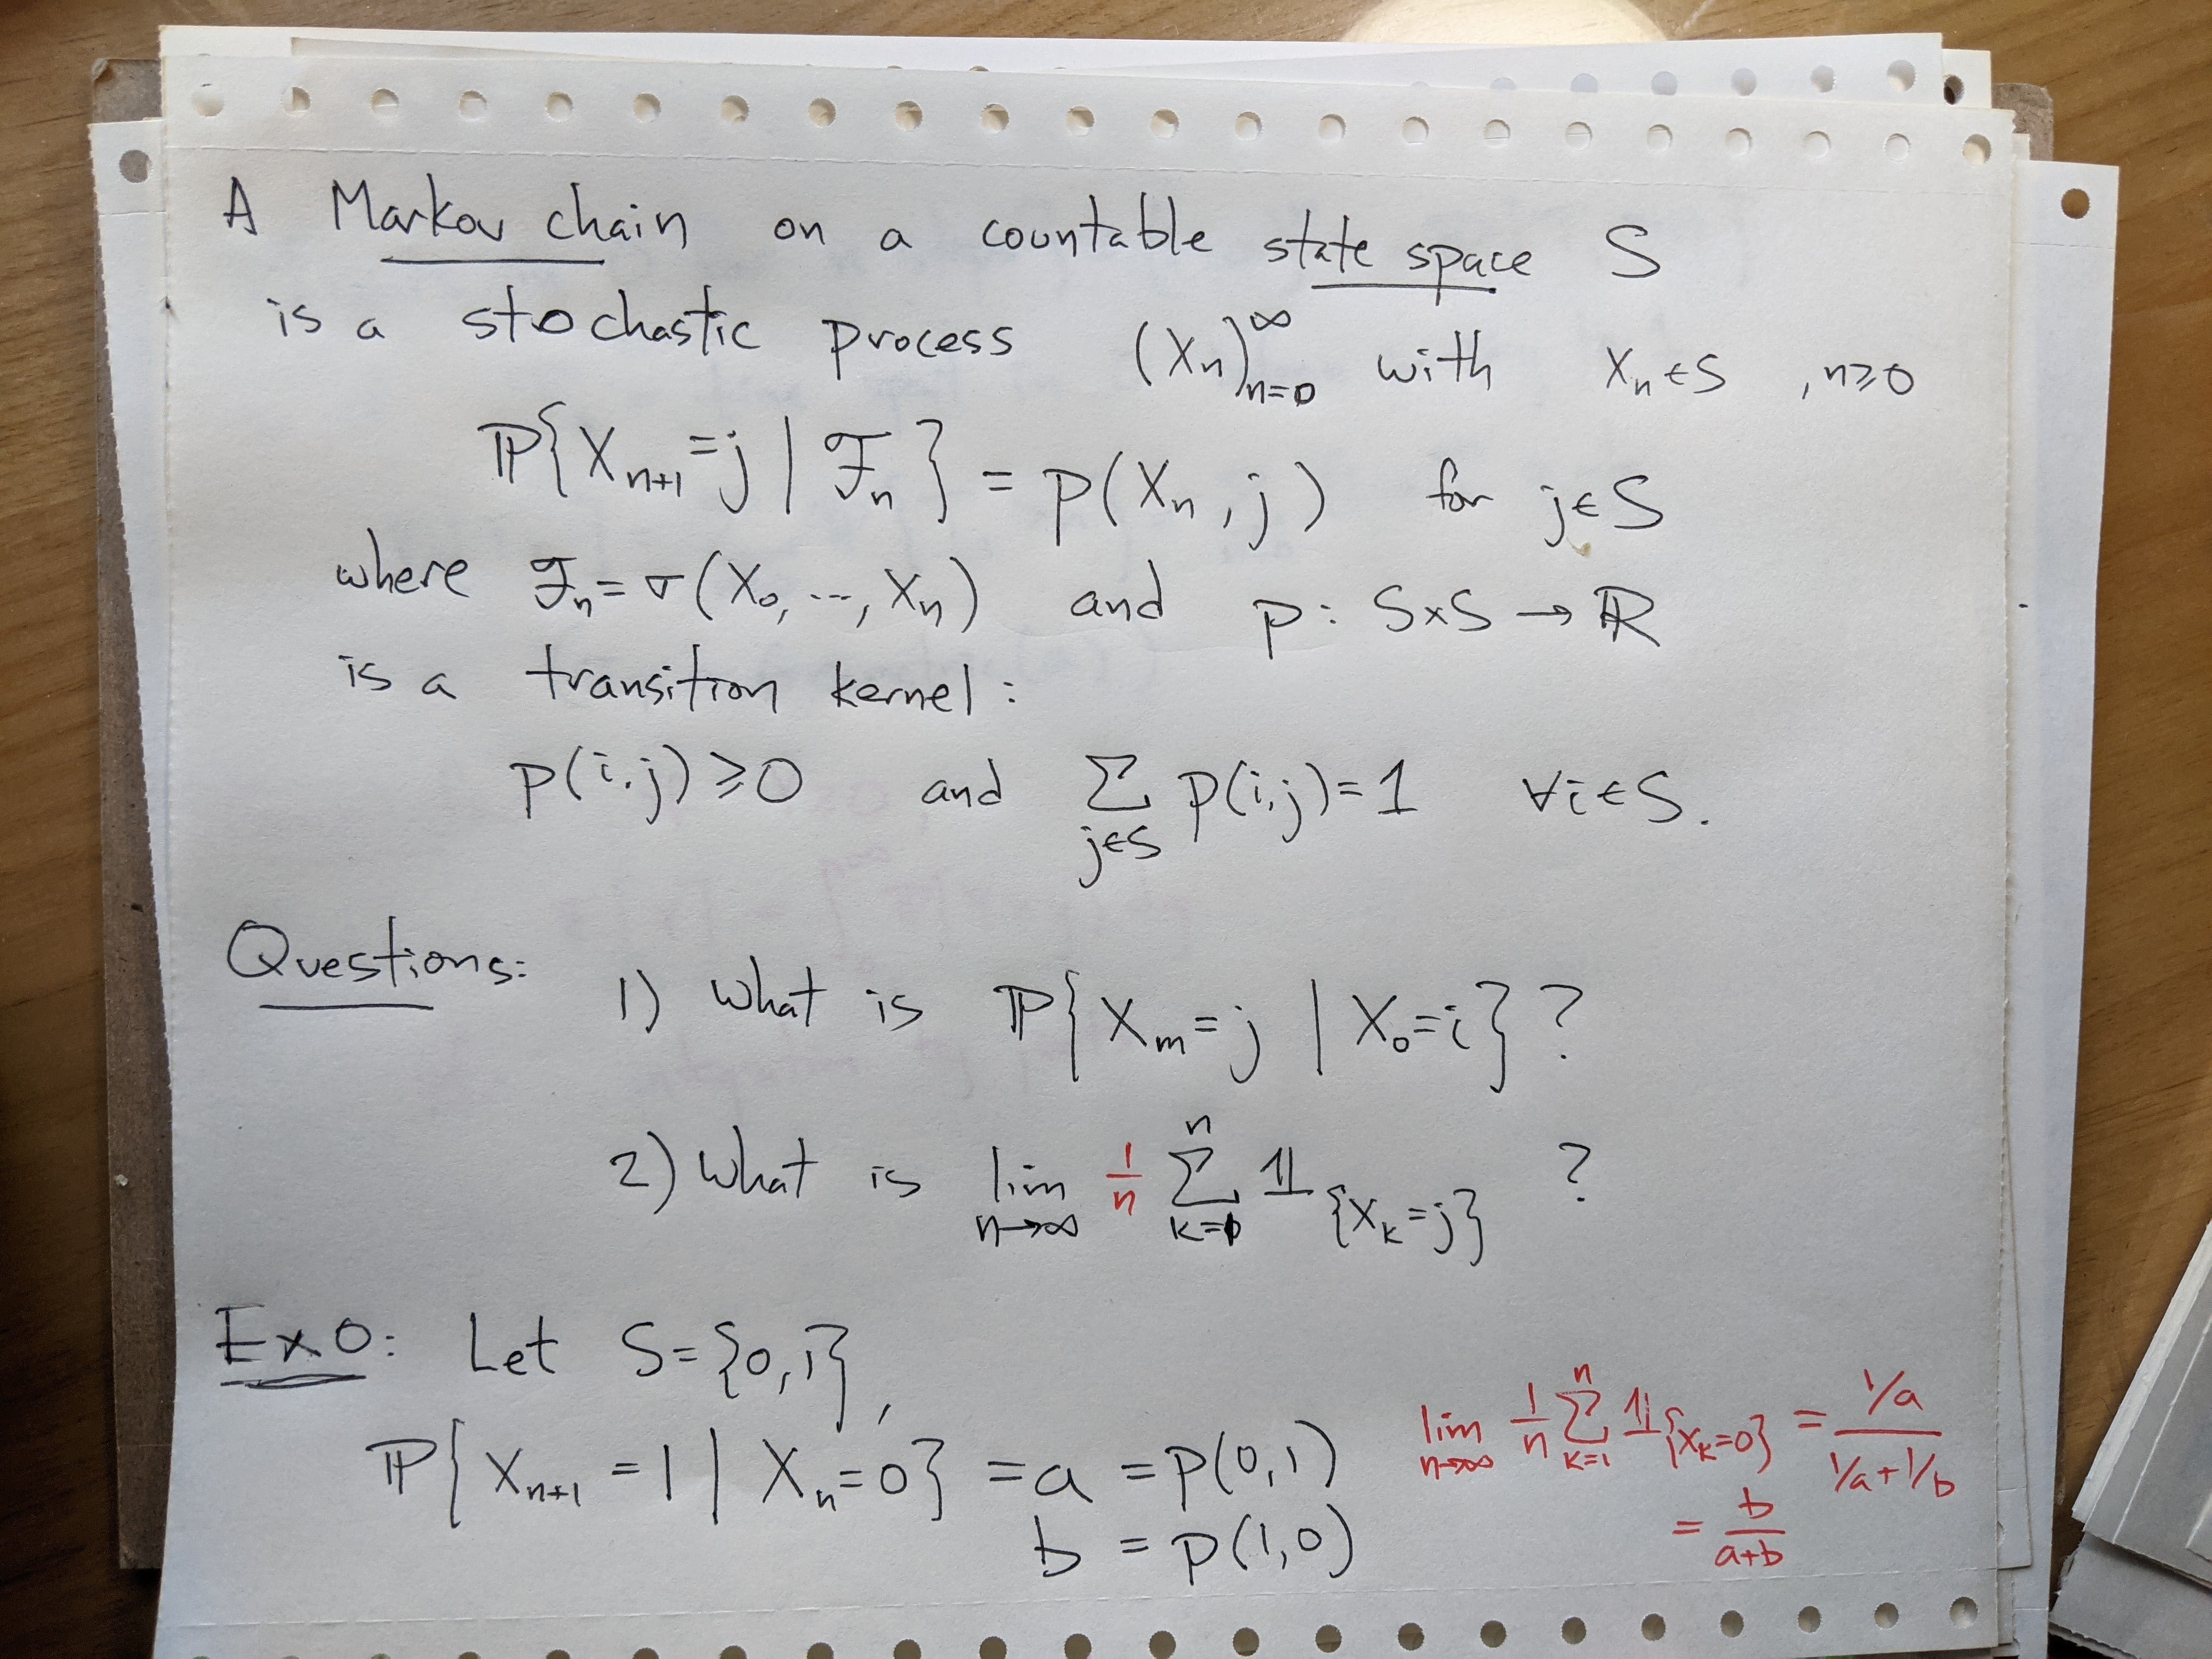 A Markov chain on a countable state space S
is a stochastic process (Xₙ)ₙ₌₀^∞ with Xₙ∈S , n≥0
ℙ{Xₙ₊₁=j | ℱₙ} = p(Xₙ, j) for j∈S
where ℱₙ=σ(X₀, ..., Xₙ) and p: S×S → ℝ
is a transition kernel:
p(i,j) ≥ 0 and ∑_{j∈S} p(i,j)=1 ∀i∈S.
Questions: 1) What is ℙ{Xₘ=j | X₀=i} ?
2) What is lim_{n→∞} 1/n ∑_{k=1}^{n} 𝟙_{{X_k=j}} ?
Ex0: Let S={0,1},
ℙ{Xₙ₊₁=1 | Xₙ=0} = a = p(0,1)
b = p(1,0)
lim_{n→∞} 1/n ∑_{k=1}^{n} 𝟙_{{X_k=0}} = (1/a)/(1/a+1/b)
= b/(a+b)